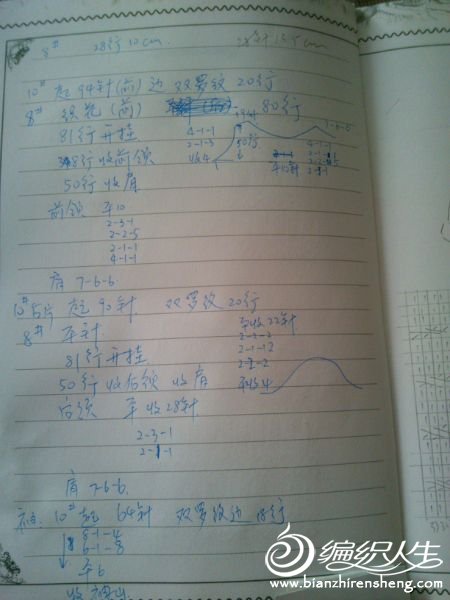 8# 28行10cm.
10# 起94针(前)边 双罗纹 20行
8# 织花(前) 80行
81行开挂
行收前领
50行收肩
前领 平10
2-3-1
2-2-5
2-1-1
4-1-1
4-1-1
2-1-3
收4
50行
7-6-6
4-1-1
平10针
肩 7-6-6
10#后片 起90针 双罗纹 20行
8# 平针
81行开挂
50行收后领 收肩
后领 平收28针
2-3-1
肩 7-6-6
平收22针
2-1-12
平收4
10#起 64针 双罗纹边 18行
8-1-4
6-1-8
平6
编织人生
www.bianzhirensheng.com